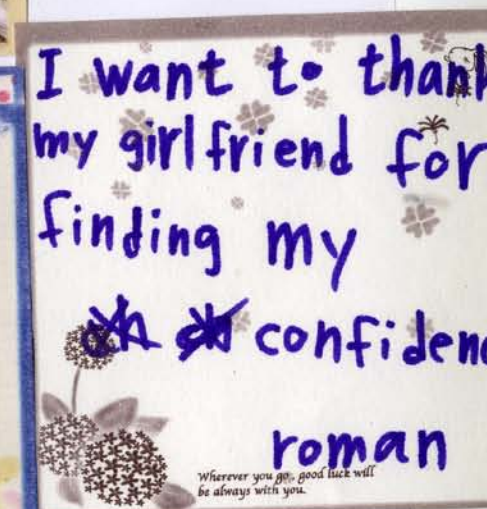 I want to thank
my girlfriend for
finding my
confidenc
roman
Wherever you go, good luck will
be always with you.